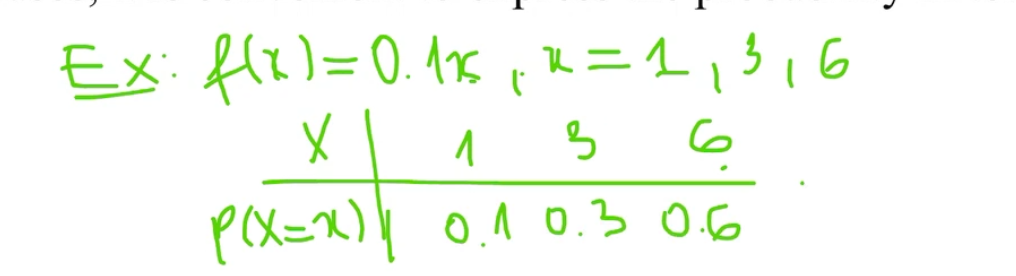 Ex: f(x)=0.1x, x=1, 3, 6
X | 1 3 6
P(X=x) | 0.1 0.3 0.6